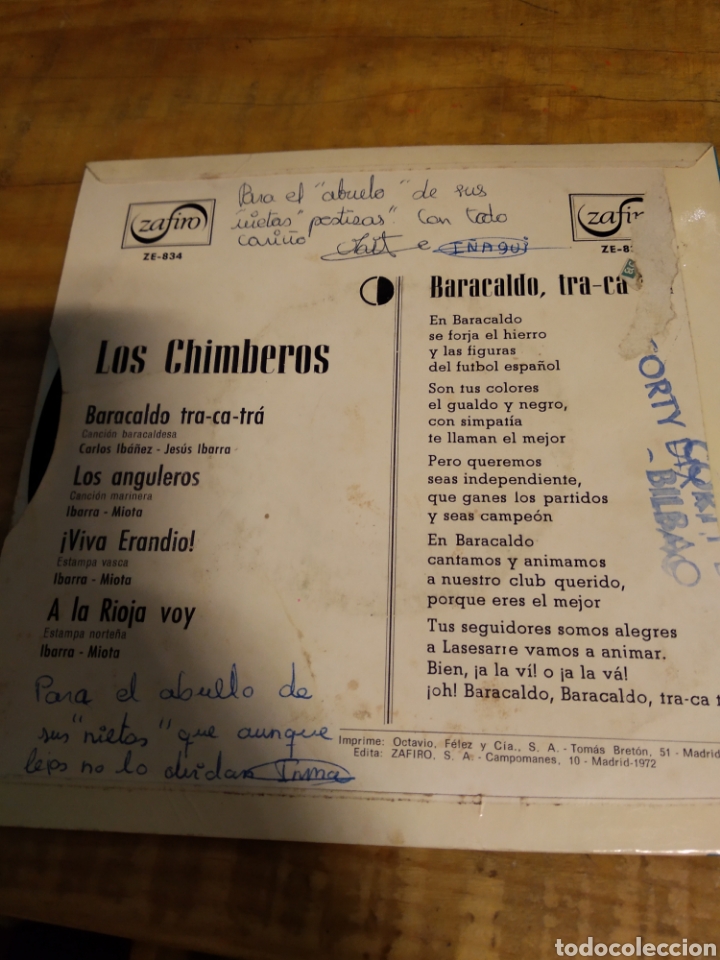 Para el "abuelo" de sus
nietas "postizas". Con todo
cariño e IÑAQUI
zafiro
ZE-834
zafir
ZE-8
Los Chimberos
Baracaldo tra-ca-trá
Canción baracaldesa
Carlos Ibáñez - Jesús Ibarra
Los anguleros
Canción marinera
Ibarra - Miota
¡Viva Erandio!
Estampa vasca
Ibarra - Miota
A la Rioja voy
Estampa norteña
Ibarra - Miota
Para el abuelo de
sus "nietos" que aunque
lejos no lo olvidan Inma
Baracaldo, tra-ca
En Baracaldo
se forja el hierro
y las figuras
del futbol español
Son tus colores
el gualdo y negro,
con simpatía
te llaman el mejor
Pero queremos
seas independiente,
que ganes los partidos
y seas campeón
En Baracaldo
cantamos y animamos
a nuestro club querido,
porque eres el mejor
Tus seguidores somos alegres
a Lasesarre vamos a animar.
Bien, ¡a la ví! o ¡a la vá!
¡oh! Baracaldo, Baracaldo, tra-ca t
Imprime: Octavio, Félez y Cía., S. A. - Tomás Bretón, 51 - Madrid
Edita: ZAFIRO, S. A. - Campomanes, 10 - Madrid-1972
ORTY
- BILBAO
todocoleccion